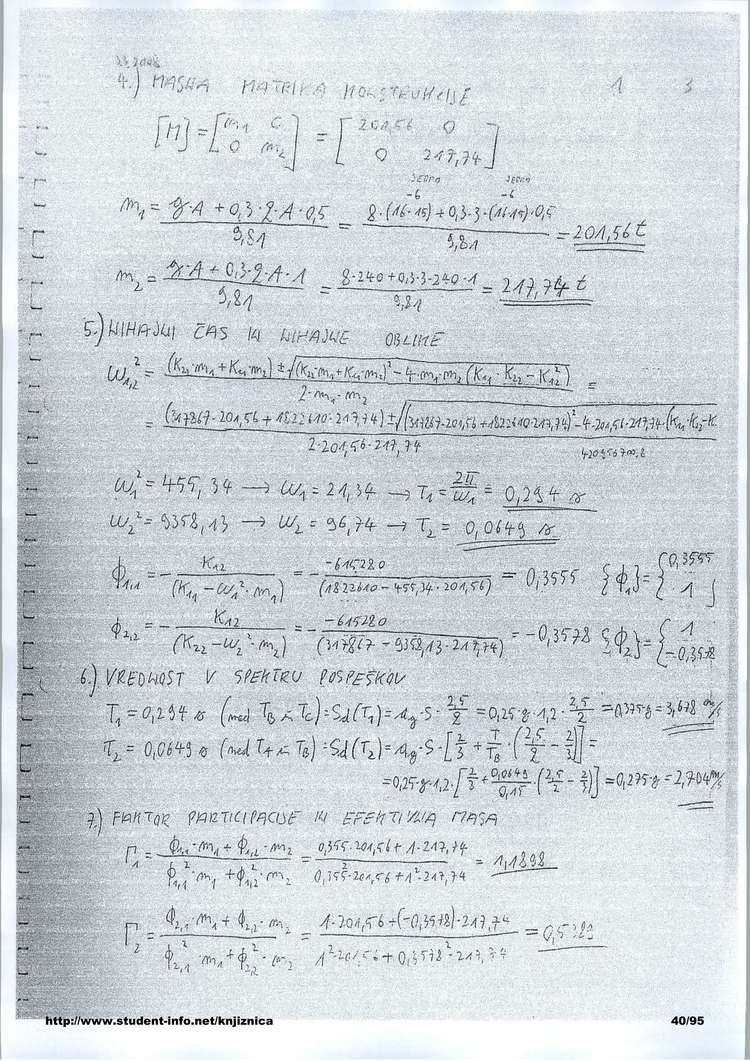 4.) MASNA MATRIKA KONSTRUKCIJE 1 3
[M] = [m1 0 / 0 m2] = [201,56 0 / 0 217,74]
JEDRO JEDRO
-6 -6
m1 = (g·A + 0,3·q·A·0,5) / 9,81 = (8·(16·15) + 0,3·3·(16·15)·0,5) / 9,81 = 201,56 t
m2 = (g·A + 0,3·q·A·1) / 9,81 = (8·240 + 0,3·3·240·1) / 9,81 = 217,74 t
5.) NIHAJNI ČAS IN NIHAJNE OBLIKE
ω1,2² = ((K22·m1 + K11·m2) ± √((K22·m1 + K11·m2)² − 4·m1·m2 (K11·K22 − K12²))) / (2·m1·m2) =
= ((317867·201,56 + 1822610·217,74) ± √((317867·201,56 + 1822610·217,74)² − 4·201,56·217,74·(K11·K12−K / (2·201,56·217,74)
ω1² = 455,34 → ω1 = 21,34 → T1 = 2π/ω1 = 0,294 s
ω2² = 9358,13 → ω2 = 96,74 → T2 = 0,0649 s
ϕ1,1 = − K12 / (K11 − ω1²·m1) = − −615280 / (1822610 − 455,34·201,56) = 0,3555 {ϕ1} = {0,3555 / 1}
ϕ2,2 = − K12 / (K22 − ω2²·m2) = − −615280 / (317867 − 9358,13·217,74) = −0,3578 {ϕ2} = {1 / −0,3578
6.) VREDNOST V SPEKTRU POSPEŠKOV
T1 = 0,294 s (med TB in TC) = Sd(T1) = ag·S·2,5/2 = 0,25·g·1,2·2,5/2 = 0,375·g = 3,678 m/s
T2 = 0,0649 s (med TA in TB) = Sd(T2) = ag·S·[2/3 + T/TB·(2,5/2 − 2/3)] =
= 0,25·g·1,2·[2/3 + 0,0649/0,15·(2,5/2 − 2/3)] = 0,275·g = 2,704 m/s
7.) FAKTOR PARTICIPACIJE IN EFEKTIVNA MASA
Γ1 = (ϕ1,1·m1 + ϕ1,2·m2) / (ϕ1,1²·m1 + ϕ1,2²·m2) = (0,355·201,56 + 1·217,74) / (0,355²·201,56 + 1²·217,74) = 1,1898
Γ2 = (ϕ2,1·m1 + ϕ2,2·m2) / (ϕ2,1²·m1 + ϕ2,2²·m2) = (1·201,56 + (−0,3578)·217,74) / (1²·201,56 + 0,3578²·217,74) = 0,5389
http://www.student-info.net/knjiznica 40/95